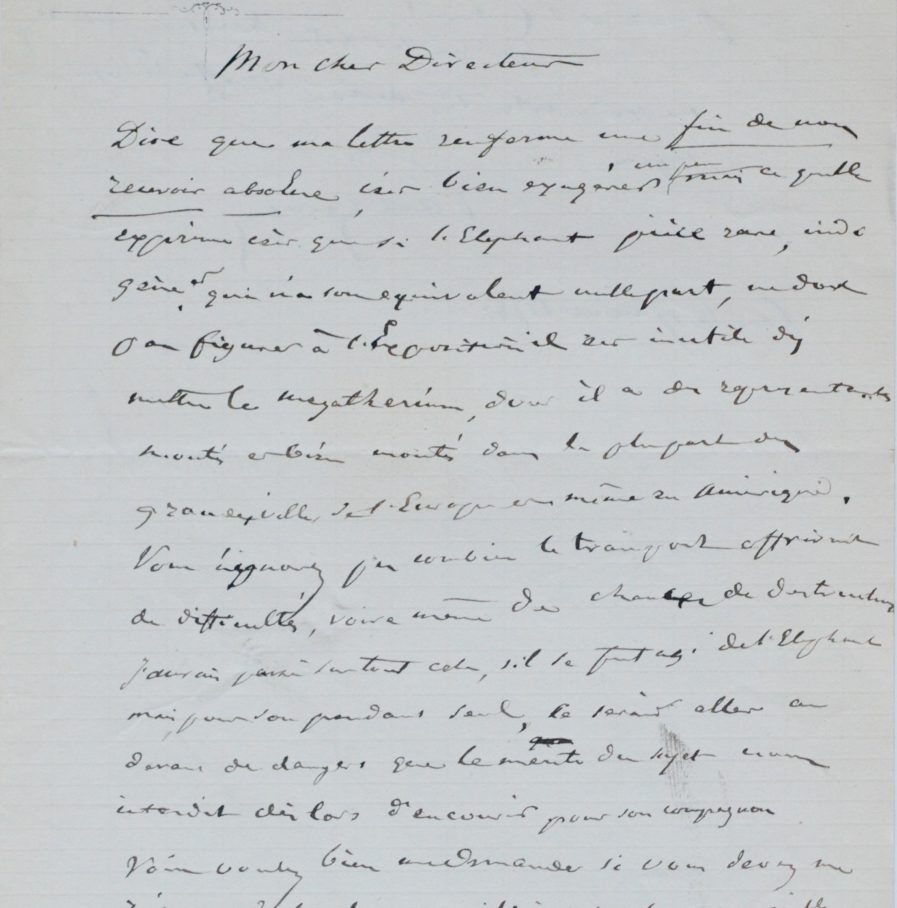 Mon cher Directeur
Dire que ma lettre renferme une fin de non
recevoir absolue, c'est bien exagéré; un peu mais ce qu'elle
exprime c'est que si l'Elephant pièce rare, indi
gène et qui n'a son equivalent nulle part, ne doit
pas figurer à l'Exposition il est inutile d'y
mettre le megatherium, dont il a des représentants
montés et bien montés dans la plupart des
grandes villes de l'Europe et même en Amérique.
Vous n'ignorez pas combien le transport offrirait
de difficultés, voire même de chances de destruction
J'aurais passé sur tout cela, s'il se fut agi de l'Elephant
mais pour son pendant seul, ce serait aller au
devant de dangers que le mérite du sujet nous
interdit dès lors d'encourir pour son compagnon
Vous voulez bien me demander si vous devez me